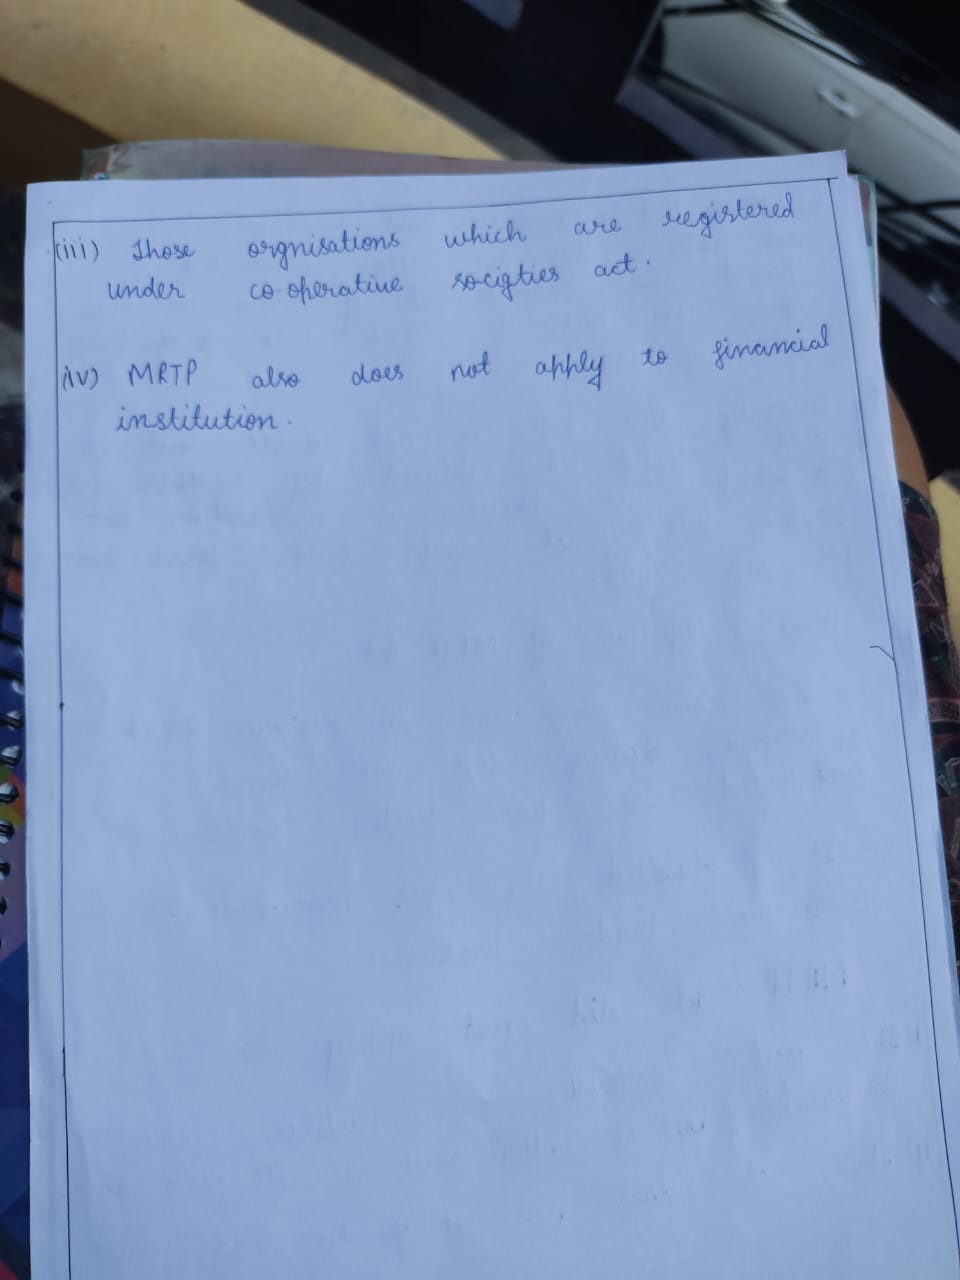 (iii) Those orgnisations which are registered
under co-operative socigties act.
(iv) MRTP also does not apply to financial
institution.